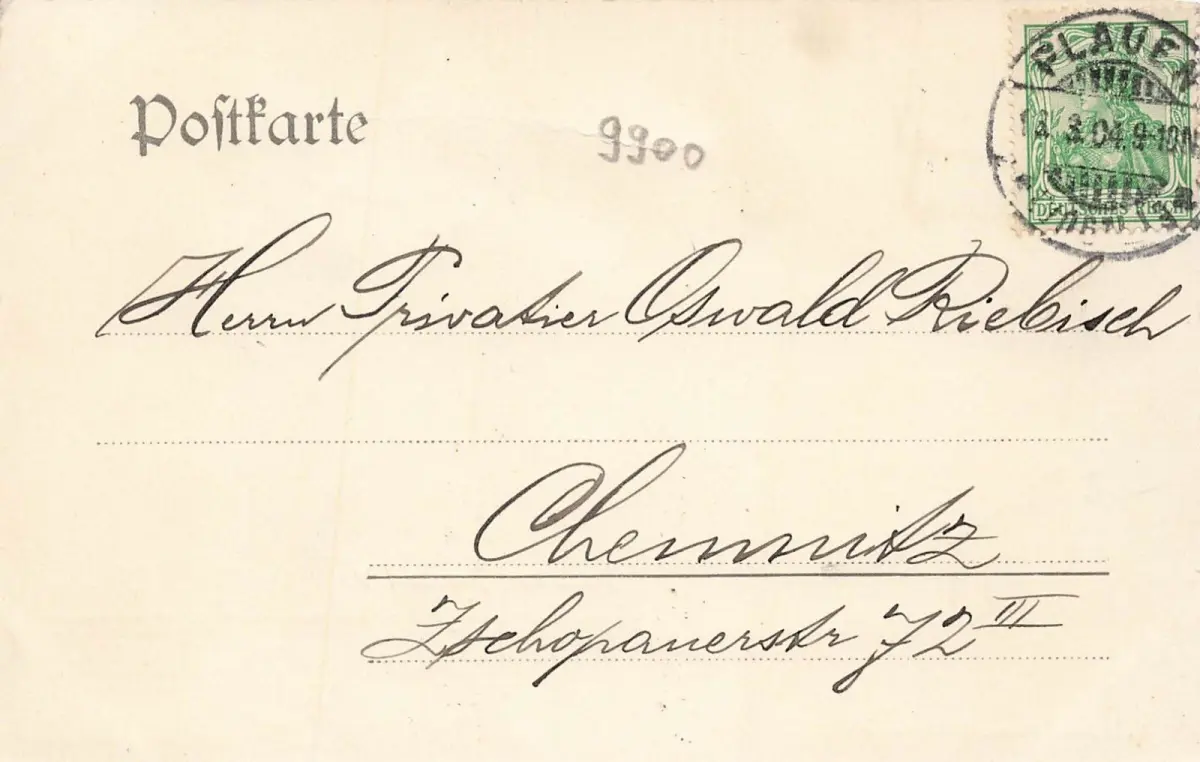 PLAUEN
3.04.9-10N
DEUTSCHES REICH
Postkarte
9900
Herrn Privatier Oswald Riebisch
Chemnitz
Zschopauerstr 72 III